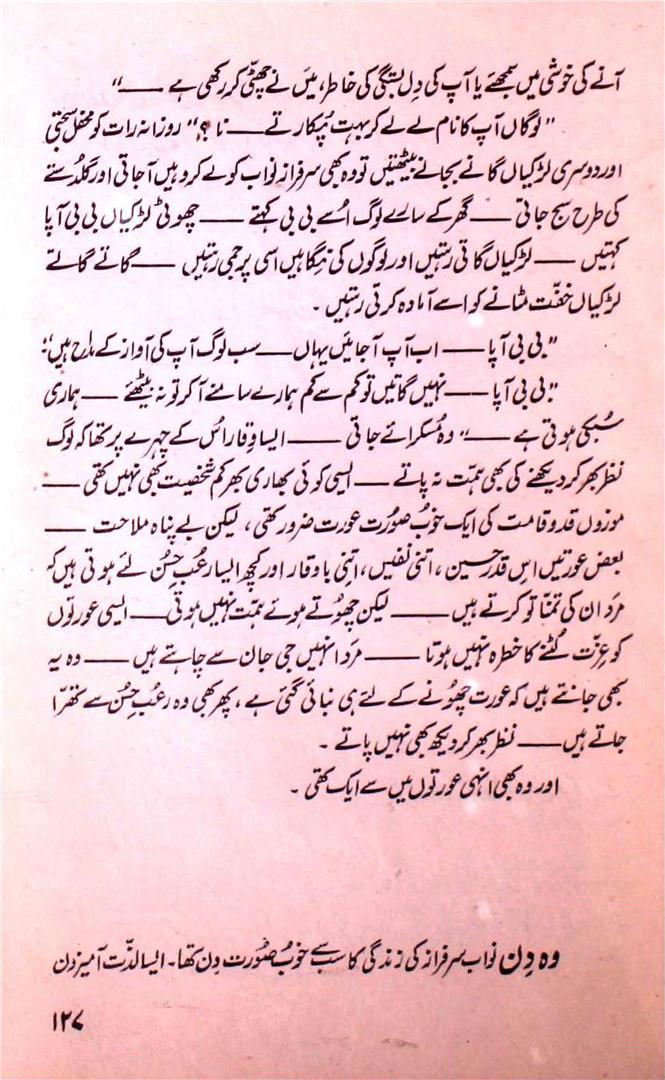 آنے کی خوشی میں سمجھئے یا آپ کی دِل بستگی کی خاطر، میں نے چھٹی کر رکھی ہے ——"
"لوگاں آپ کا نام لے لے کر بہت پُکارتے —— نا ؟" روزانہ رات کو محفل سجتی
اور دوسری لڑکیاں گانے بجانے بیٹھتیں تو وہ بھی سرفراز نواب کو لے کر وہیں آ جاتی اور گلدستے
کی طرح سج جاتی —— گھر کے سارے لوگ اُسے بی بی کہتے —— چھوٹی لڑکیاں بی بی آپا
کہتیں —— لڑکیاں گاتی رہتیں اور لوگوں کی نگاہیں اسی پر جمی رہتیں —— گاتے گاتے
لڑکیاں خفّت مٹانے کو اسے آمادہ کرتی رہتیں ۔
"بی بی آپا —— اب آپ آ جائیں یہاں —— سب لوگ آپ کی آواز کے مداح ہیں"؛
"بی بی آپا —— نہیں گاتیں تو کم سے کم ہمارے سامنے آ کر تو نہ بیٹھئے —— ہماری
سُبکی ہوتی ہے ——" وہ مُسکرائے جاتی —— ایسا وقار اُس کے چہرے پر تھا کہ لوگ
نظر بھر کر دیکھنے کی بھی ہمّت نہ پاتے —— ایسی کوئی بھاری بھر کم شخصیت بھی نہیں تھی ——
موزوں قد و قامت کی ایک خوبُ صوُرت عورت ضرور تھی ، لیکن بے پناہ ملاحت ——
بعض عورتیں اس قدر حسین ، اتنی نفیس ، اتنی باوقار اور کچھ ایسا رعُبِ حسُن لئے ہوتی ہیں کہ
مرَد ان کی تمنّا تو کرتے ہیں —— لیکن چھوُتے ہوئے ہمّت نہیں ہوتی —— ایسی عورتوں
کو عزّت لُٹنے کا خطرہ نہیں ہوتا —— مرَد انہیں جی جان سے چاہتے ہیں —— وہ یہ
بھی جانتے ہیں کہ عورت چھوُنے کے لئے ہی بنائی گئی ہے ، پھر بھی وہ رعُبِ حسُن سے تھرّا
جاتے ہیں —— نظر بھر کر دیکھ بھی نہیں پاتے ۔
اور وہ بھی انہی عورتوں میں سے ایک تھی ۔
وہ دِن نواب سرفراز کی زندگی کا سب سے خوبُ صوُرت دِن تھا ۔ ایسا لذّت آمیز دن
۱۲۷